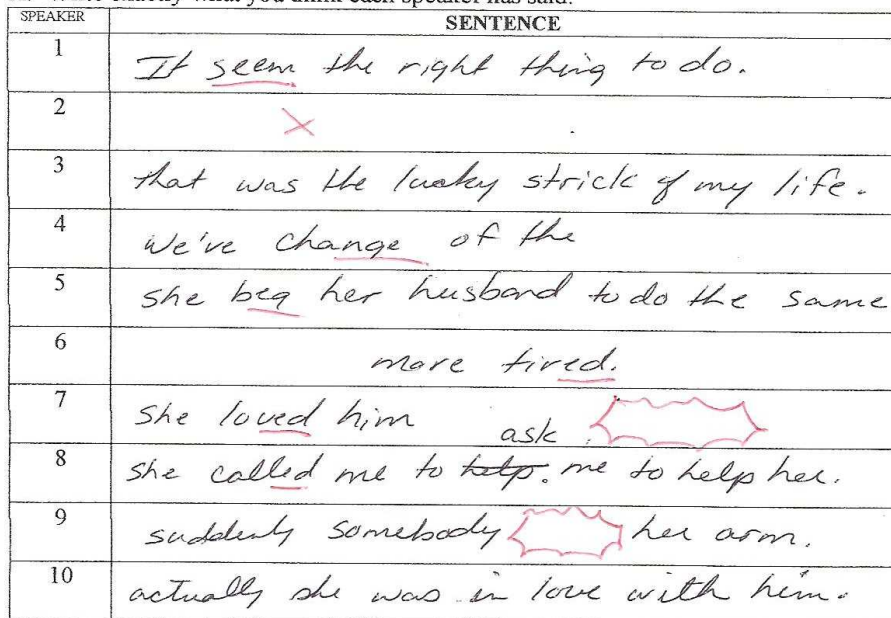 SPEAKER SENTENCE
1 It seem the right thing to do.
2
3 that was the lucky strick of my life.
4 we've change of the
5 she beg her husband to do the same
6 more tired.
7 she loved him
ask
8 she called me to help. me to help her.
9 suddenly somebody her arm.
10 actually she was in love with him.